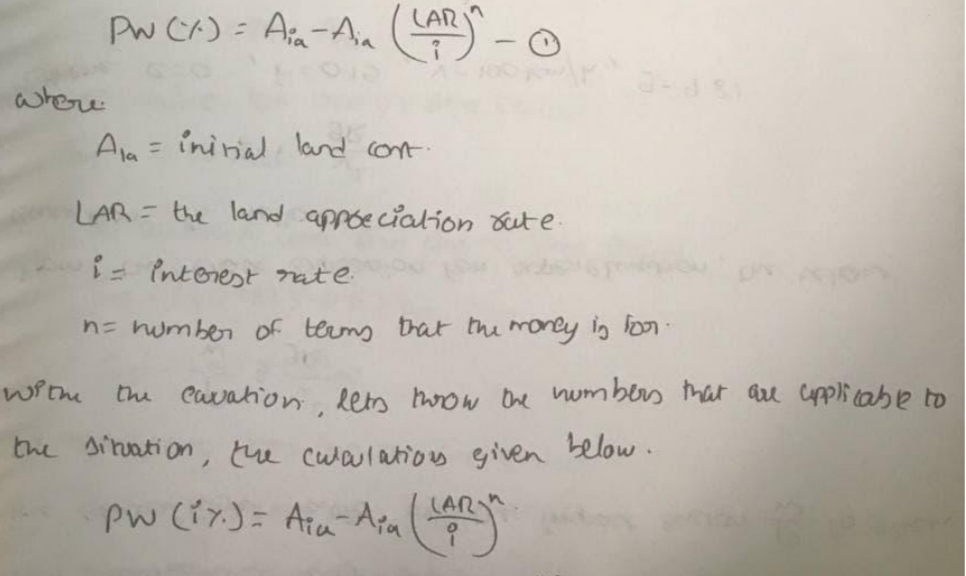 PW (%) = Aia - Aia (LAR/i)^n - ①
where
A1a = initial land cost.
LAR = the land appreciation rate.
i = interest rate.
n = number of terms that the money is for.
with the equation, lets throw the numbers that are applicable to
the situation, the calculations given below.
PW (i%) = Aia - Aia (LAR/i)^n